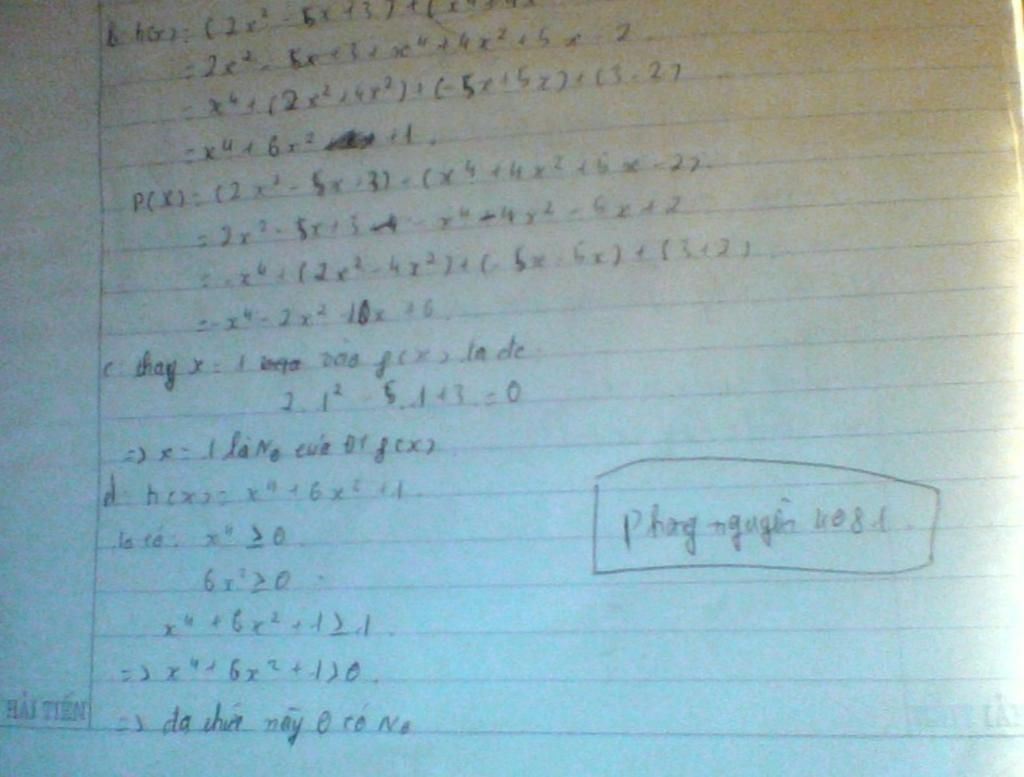 b. h(x) = (2x² - 5x + 3) + (x⁴ + 4x
= 2x² - 5x + 3 + x⁴ + 4x² + 5x - 2
= x⁴ + (2x² + 4x²) + (-5x + 5x) + (3 - 2)
= x⁴ + 6x² + 1.
P(x) = (2x² - 5x + 3) - (x⁴ + 4x² + 5x - 2).
= 2x² - 5x + 3 - x⁴ - 4x² - 5x + 2
= -x⁴ + (2x² - 4x²) + (-5x - 5x) + (3 + 2)
= -x⁴ - 2x² - 10x +
c. thay x = 1 vào f(x) ta đc
2. 1² - 5. 1 + 3 = 0
=> x = 1 là No của ĐT f(x)
d. h(x) = x⁴ + 6x² + 1.
Ta có: x⁴ ≥ 0
6x² ≥ 0
x⁴ + 6x² + 1 ≥ 1.
=> x⁴ + 6x² + 1 > 0.
=> đa thức này 0 có No
Phong nguyên 4081.
HẢI TIẾN